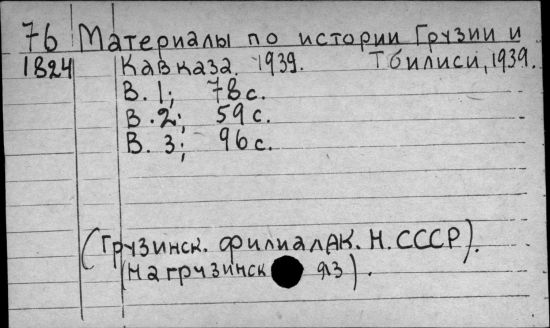 76 Материалы по истории Грузии и
1824 Кавказа. 1939. Тбилиси, 1939.
В. 1; 78 с.
В. 2; 59 с.
В. 3; 96 с.
(Грузинск. филиал АК. Н. СССР).
(На грузинск яз).